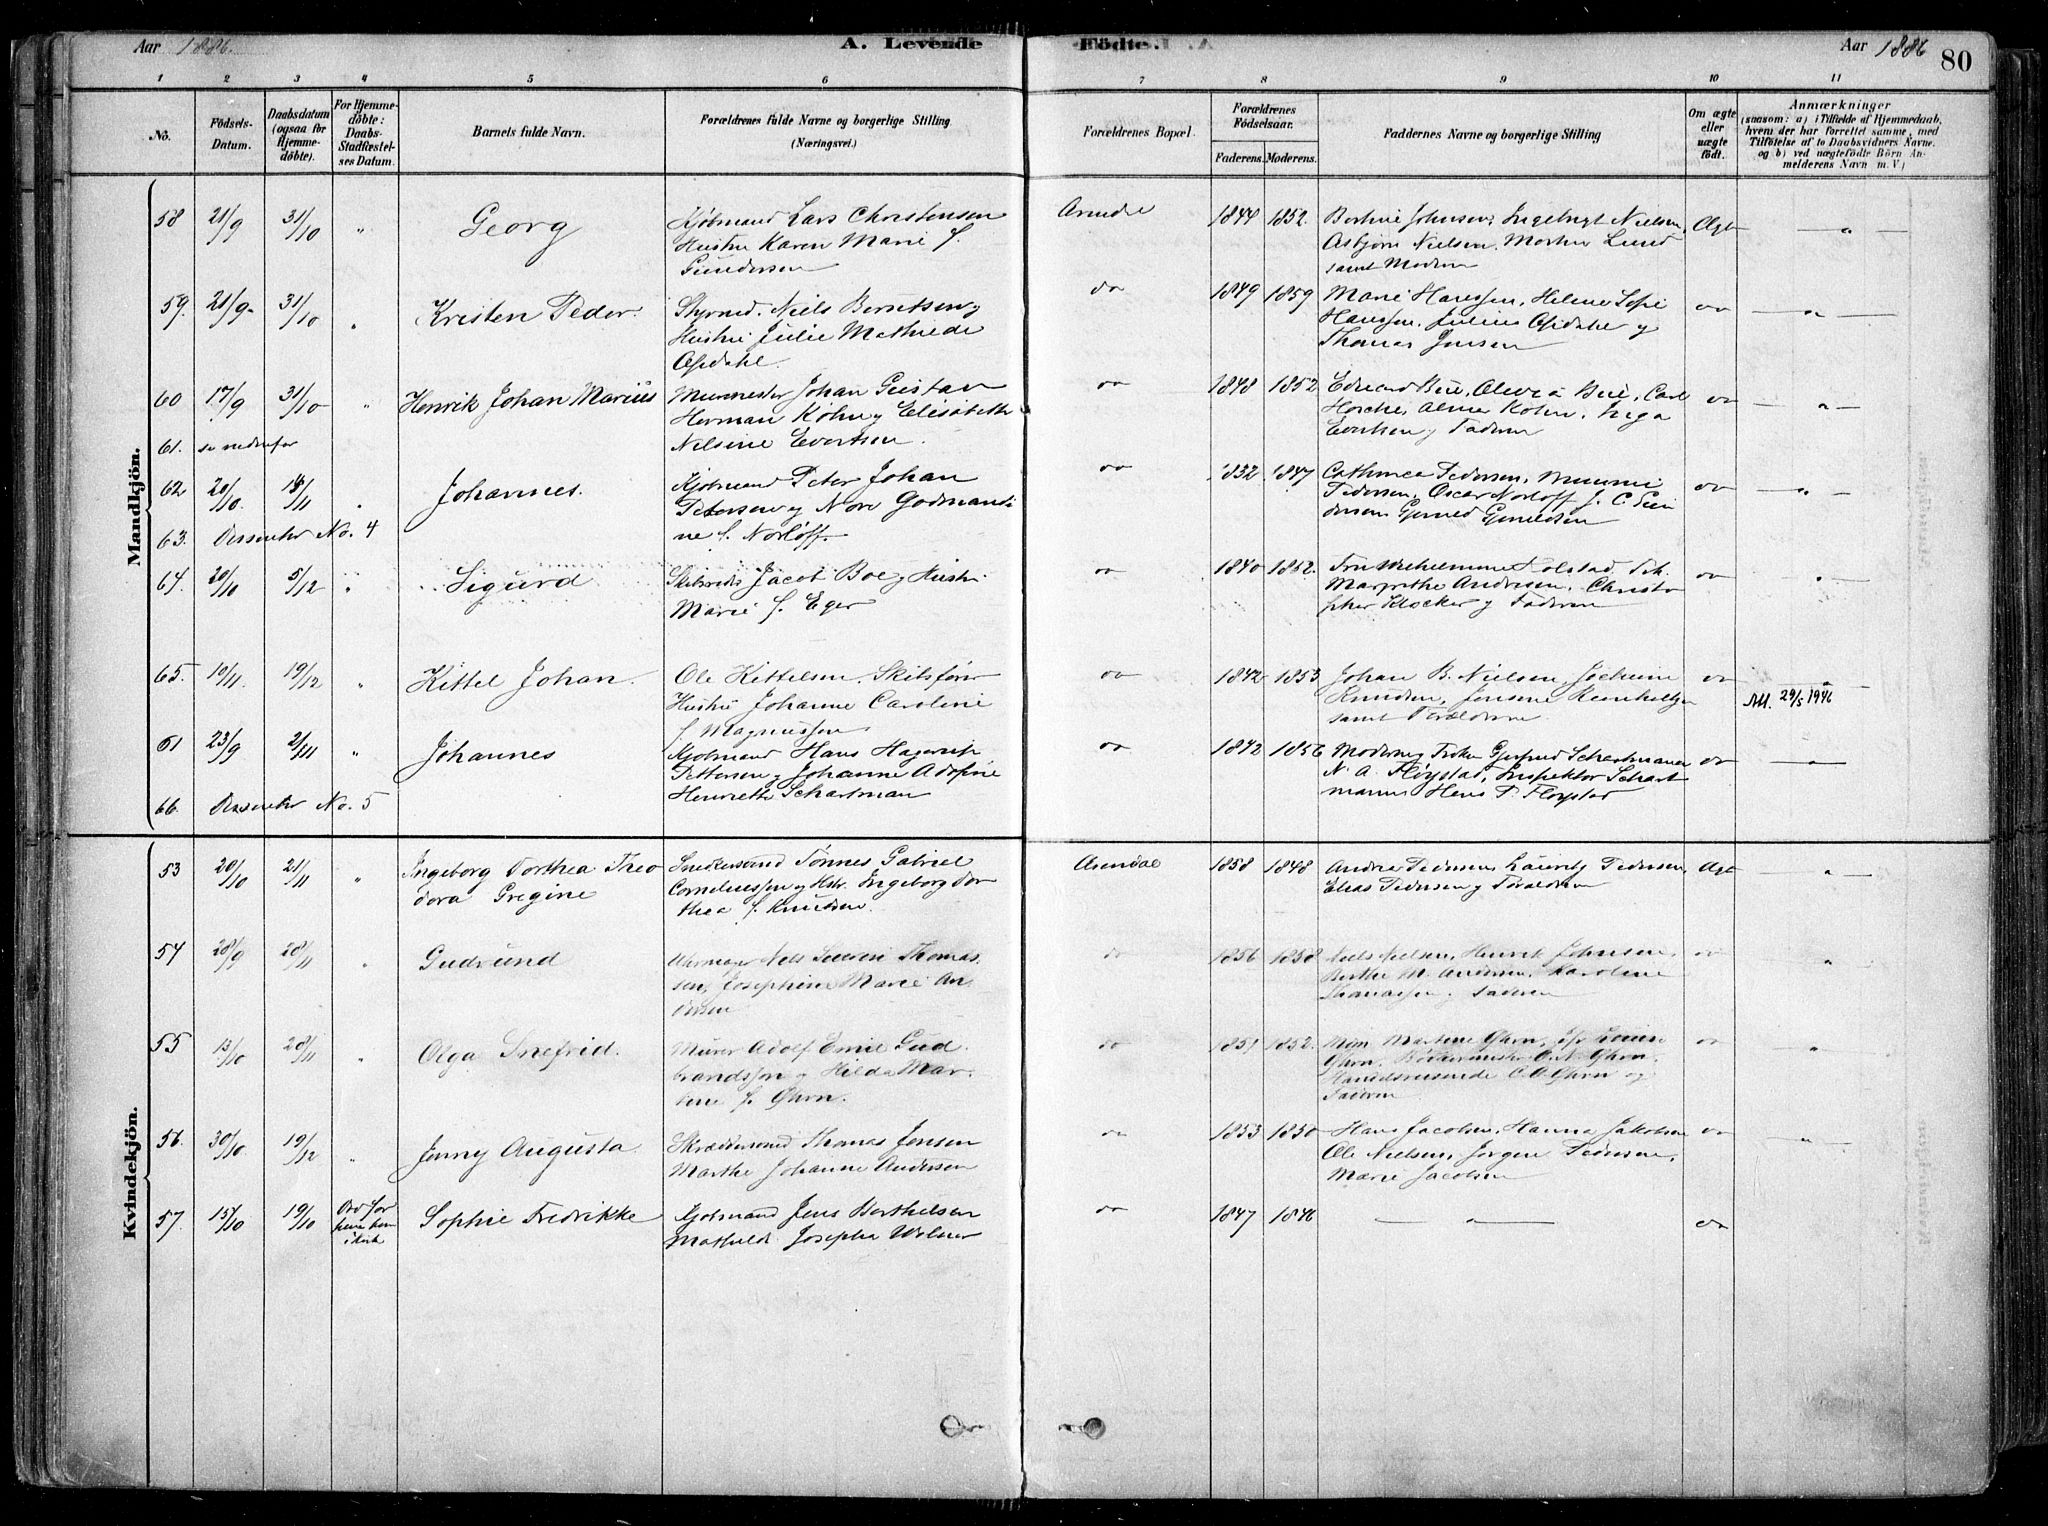 Aar 1886.
A. Levende
Födte.
Aar 1886
80
1 2 3 4 5 6 7 8 9 10 11
No.
Födsels-
Datum.
Daabsdatum
(ogsaa for
Hjemme-
döbte).
For Hjemme-
döbte:
Daabs-
Stadfæstel-
ses Datum.
Barnets fulde Navn.
Forældrenes fulde Navne og borgerlige Stilling
(Næringsvei.)
Forældrenes Bopæl.
Forældrenes
Födselsaar.
Faderens. Moderens.
Faddernes Navne og borgerlige Stilling
Om ægte
eller
uægte
födt.
Anmærkninger
(saasom: a) i Tilfælde af Hjemmedaab,
hvem der har forrettet samme, med
Tilföielse af to Daabsvidners Navne.
og b) ved uægtefödte Börn An-
melderens Navn m. V.)
Mandkjön.
58 21/9 31/10 " Georg
Kjøbmand Lars Christensen
Hustru Karen Marie f.
Gundersen
Arendal 1844 1852.
Asbjørn Nielsen, Morten Lund
samt Moderen
Ægt — " —
59. 21/9 31/10 " Kristen Peder.
Styrmd. Niels Berntsen og
Hustru Julie Mathilde
do 1849 1859
Marie Hanssen, Helene Sofie
Hanssen, Julius
Thomas Jensen
do — " —
60 17/9 31/10 " Henrik Johan Marius
Murmester Johan Gustav
Herman Köhn og Elisabeth
Nilsine Evertsen.
do 1848 1852
Evertsen og Faderen
do — " —
61. se nedenfor
62 20/10. 14/11 " Johannes.
Kjøbmand Peter Johan
Petersen og Nore Godmandi
ne f. Norloff.
do 1832 1847
Pedersen, Oscar Norloff J. C.
do — " —
63. Dissenter No. 4
64. 20/10 5/12 " Sigurd
Skibsreder Jacob Boe og Hustru
Marie f. Eger
do 1840 1852.
Margrethe Andresen, Christo
pher Klocker og Faderen
do "
65. 10/11. 19/12 " Kittel Johan.
Ole Kittelsen, Skibsfører
Hustru Johanne Caroline
f. Magnussen
do 1842 1853
Johan B. Nielsen, Jochum
Knudsen, Jensine
samt Forældrene.
do "
Att. 29/5 1946
61 23/9 2/11 " Johannes
Kjøbmand Hans Hagerup
Pettersen og Johanne Adofine
Henriette Schartman
do 1842 1856
N. A. Fløystad, Inspektør Schart
mann Hans P. Fløystad
do — " —
66. Dissenter No. 5
Kvindekjön.
53 20/10 21/11 " Ingeborg Dorthea Theo
dora Gregine
Snedkersvend Tønnes Gabriel
Corneliussen og Hstr. Ingeborg Dor
thea f. Knudsen.
Arendal 1858 1848
Andrea Pedersen, Lauritz Pedersen,
Elias Pedersen og Forældrene
Ægt — " —
54 28/9 28/11 " Gudrund
Uhrmager Nils Severin Thomas
sen, Josephine Marie An
dersen
do 1856 1858
Niels Nielsen, Henrik Johnsen,
Berthe M. Andersen, Karoline
Thomassen, Faderen
do "
55 13/10 28/11 " Olga Snefrid.
Murer Adolf Emil Gud
brandssen og Hilda Mar
tine f. Ghrn.
do 1851 1852.
Handelsreisende C. O. Ghrn og
Faderen
do "
56. 30/10 19/12 " Jenny Augusta.
Skræddersvend Thomas Jensen
Marthe Johanne Andersen
do 1853 1850
Hans Jacobsen, Hanna Jakobsen
Ole Nielsen, Jørgen Pedersen,
Marie Jacobsen
do "
57. 15/10 19/10 Sophie Fredrikke
Kjøbmand Jens Berthelsen
Mathilde Josepha Wilmer
do 1847 1846
— " —
do